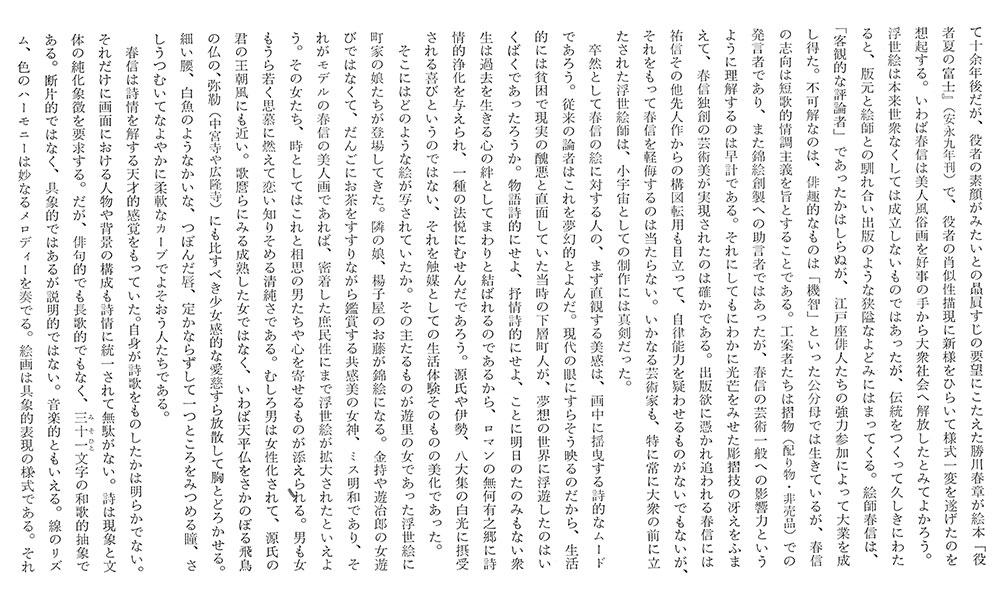 て十余年後だが、役者の素顔がみたいとの贔屓すじの要望にこたえた勝川春章が絵本「役
者夏の富士」（安永九年刊）で、役者の肖似性描現に新様をひらいて様式一変を遂げたのを
想起する。いわば春信は美人風俗画を好事の手から大衆社会へ解放したとみてよかろう。
浮世絵は本来世衆なくしては成立しないものではあったが、伝統をつくって久しきにわた
ると、版元と絵師との馴れ合い出版のような狭隘なよどみにはまってくる。絵師春信は、
「客観的な評論者」であったかはしらぬが、江戸座俳人たちの強力参加によって大業を成
し得た。不可解なのは、俳趣的なものは「機智」といった公分母では生きているが、春信
の志向は短歌的情調主義を旨とすることである。工案者たちは摺物（配り物・非売品）での
発言者であり、また錦絵創製への助言者ではあったが、春信の芸術一般への影響力という
ように理解するのは早計である。それにしてもにわかに光芒をみせた彫摺技の冴えをふま
えて、春信独創の芸術美が実現されたのは確かである。出版欲に憑かれ追われる春信には
祐信その他先人作からの構図転用も目立って、自律能力を疑わせるものがないでもないが、
それをもって春信を軽侮するのは当たらない。いかなる芸術家も、特に常に大衆の前に立
たされた浮世絵師は、小宇宙としての制作には真剣だった。
卒然として春信の絵に対する人の、まず直観する美感は、画中に揺曳する詩的なムード
であろう。従来の論者はこれを夢幻的とよんだ。現代の眼にすらそう映るのだから、生活
的には貧困で現実の醜悪と直面していた当時の下層町人が、夢想の世界に浮遊したのはい
くばくであったろうか。物語詩的にせよ、抒情詩的にせよ、ことに明日のたのみもない衆
生は過去を生きる心の絆としてまわりと結ばれるのであるから、ロマンの無何有之郷に詩
情的浄化を与えられ、一種の法悦にむせんだであろう。源氏や伊勢、八大集の白光に摂受
される喜びというのではない、それを触媒としての生活体験そのものの美化であった。
そこにはどのような絵が写されていたか。その主たるものが遊里の女であった浮世絵に
町家の娘たちが登場してきた。隣の娘、楊子屋のお藤が錦絵になる。金持や遊冶郎の女遊
びではなくて、だんごにお茶をすすりながら鑑賞する共感美の女神、ミス明和であり、そ
れがモデルの春信の美人画であれば、密着した庶民性にまで浮世絵が拡大されたといえよ
う。その女たち、時としてはこれと相思の男たちや心を寄せるものが添えられる。男も女
もうら若く思慕に燃えて恋い知りそめる清純さである。むしろ男は女性化されて、源氏の
君の王朝風にも近い。歌麿らにみる成熟した女ではなく、いわば天平仏をさかのぼる飛鳥
の仏の、弥勒（中宮寺や広隆寺）にも比すべき少女感的な愛慈すら放散して胸とどろかせる。
細い腰、白魚のようなかいな、つぼんだ唇、定かならずして一つところをみつめる瞳、さ
しうつむいてなよやかに柔軟なカーブでよそおう人たちである。
春信は詩情を解する天才的感覚をもっていた。自身が詩歌をものしたかは明らかでない。
それだけに画面における人物や背景の構成も詩情に統一されて無駄がない。詩は現象と文
体の純化象徴を要求する。だが、俳句的でも長歌的でもなく、三十一文字の和歌的抽象で
ある。断片的ではなく、具象的ではあるが説明的ではない。音楽的ともいえる。線のリズ
ム、色のハーモニーは妙なるメロディーを奏でる。絵画は具象的表現の様式である。それ